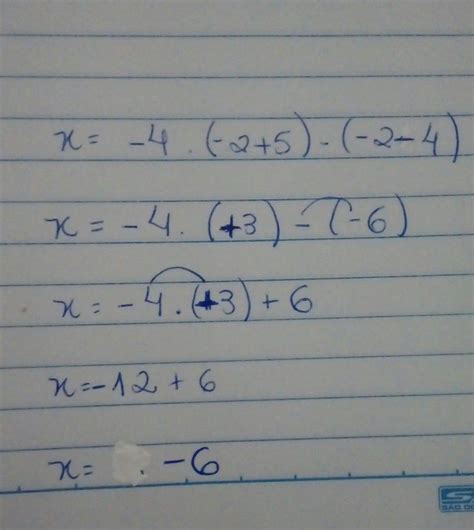 x = -4 . (-2+5) - (-2-4)
x = -4 . (+3) - (-6)
x = -4 . (+3) + 6
x = -12 + 6
x = . -6